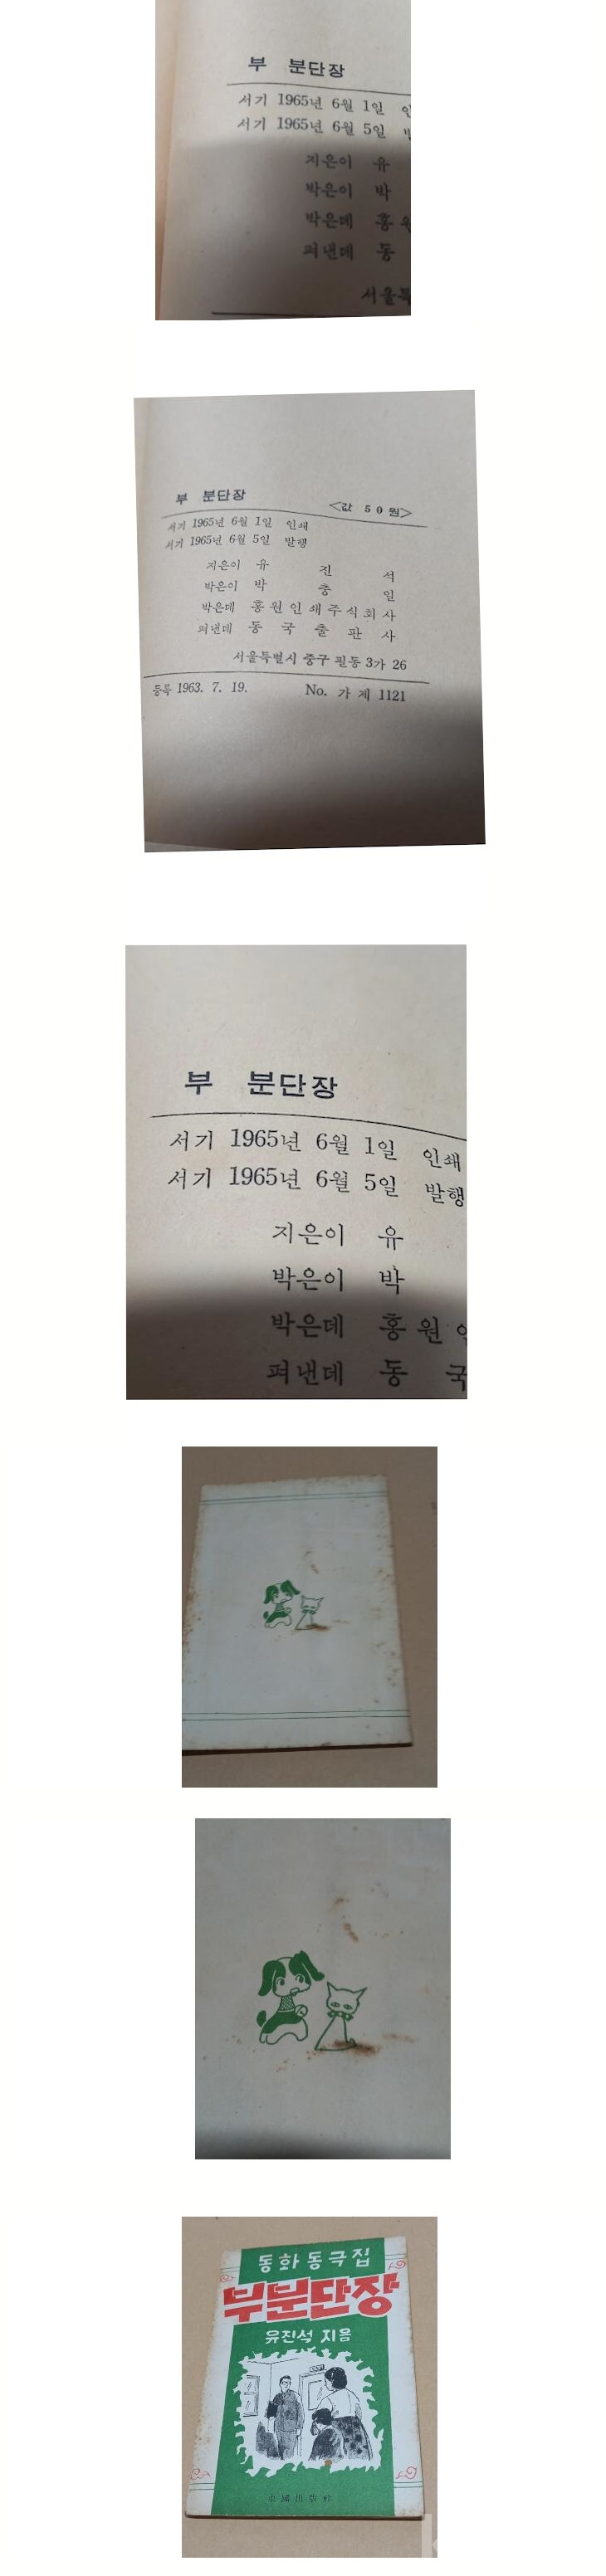 부 분단장
서기 1965년 6월 1일
서기 1965년 6월 5일
지은이 유
박은이 박
박은데 홍
펴낸데 동
서울특
부 분단장
<값 50원>
서기 1965년 6월 1일 인쇄
서기 1965년 6월 5일 발행
지은이 유 진 석
박은이 박 충 일
박은데 홍원인쇄주식회사
펴낸데 동 국 출 판 사
서울특별시 중구 필동 3가 26
등록 1963. 7. 19. No. 가 제 1121
부 분단장
서기 1965년 6월 1일 인쇄
서기 1965년 6월 5일 발행
지은이 유
박은이 박
박은데 홍 원
펴낸데 동 국
동화동극집
부분단장
유진석 지음
東國出版社